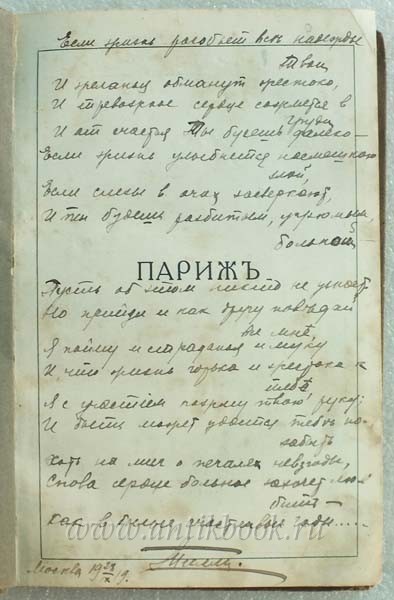 Если жизнь разобьет все надежды
Твои
И желанья обманут жестоко,
И тревожное сердце сожмется в
груди
И от счастья Ты будешь далеко –
Если жизнь улыбнется насмешкою
злой,
Если слезы в очах засверкают,
И ты будешь разбитым, угрюмым,
больной –
ПАРИЖЪ
Пусть об этом никто не узнает
Но приди и как другу поведай
все мне
Я пойму и страданья и муку
И что жизнь горька и жестока к
тебѣ
Я с участіем пожму твою руку;
И быть может удастся тебѣ по-
забыть
Хоть на миг о печалях невзгоды,
Снова сердце больное захочет лю-
бить –
Как в былые счастливые годы.....
Москва 19 19.
www.antikbook.ru